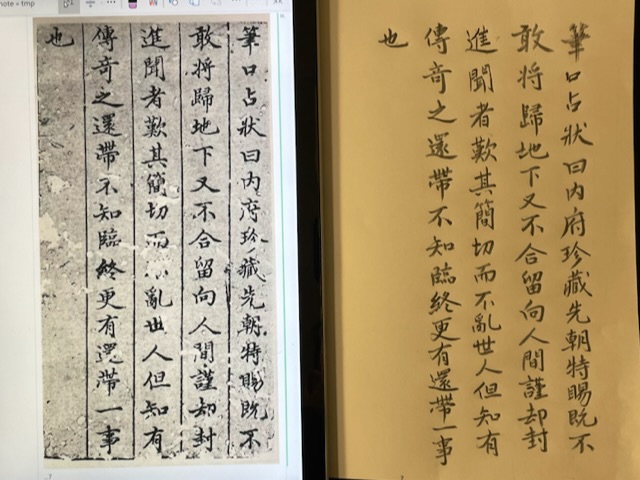 note » tmp
筆口占狀曰内府珍藏先朝特賜既不
敢将歸地下又不合留向人間謹却封
進聞者歎其簡切而亂世人但知有
傳奇之還帶不知臨終更有還帶一事
也
筆口占狀曰内府珍藏先朝特賜既不
敢将歸地下又不合留向人間謹却封
進聞者歎其簡切而不亂世人但知有
傳奇之還帶不知臨終更有還帶一事
也